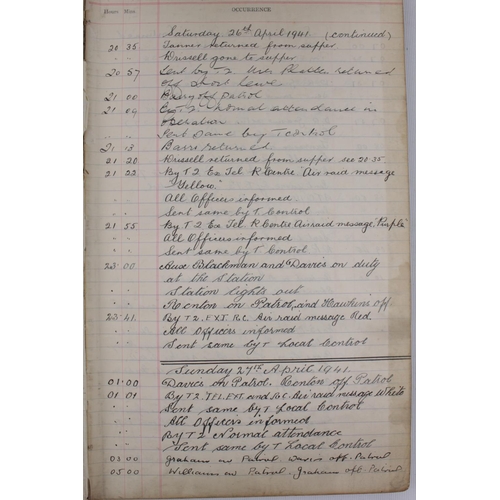 Hours Mins OCCURRENCE
Saturday 26th April 1941 (continued)
20 35 Tanner returned from supper
" " Russell gone to supper
20 57 Sent by T.2. returned
off short leave
21 00 Barry off Patrol
21 09 T.2. Normal attendance in
operation
" " Sent same by T control
21 13 returned
21 20 Russell returned from supper see 20.35
21 22 By T 2 Ex Tel. R Centre Air raid message
"Yellow."
" " All Officers informed
" " Sent same by T Control
21 55 By T 2 Ex Tel. R Centre Air raid message "Purple"
" " All Officers informed
" " Sent same by T Control
23 00 Blackman and Davies on duty
at the Station
" " Station lights out
" " Renton on Patrol, and Hawkins off.
23 41 By T 2. EXT. R.C. Air raid message Red.
" " All Officers informed
" " Sent same by T Local Control
Sunday 27th April 1941.
01 00 Davies on Patrol. Renton off Patrol
01 01 By T 2. TEL. EXT. and R.C. Air raid message White
" " Sent same by T Local Control
" " All Officers informed
" " By T 2 Normal attendance
" " Sent same by T Local Control
03 00 Graham on Patrol Davies off Patrol.
05 00 Williams on Patrol, Graham off Patrol.